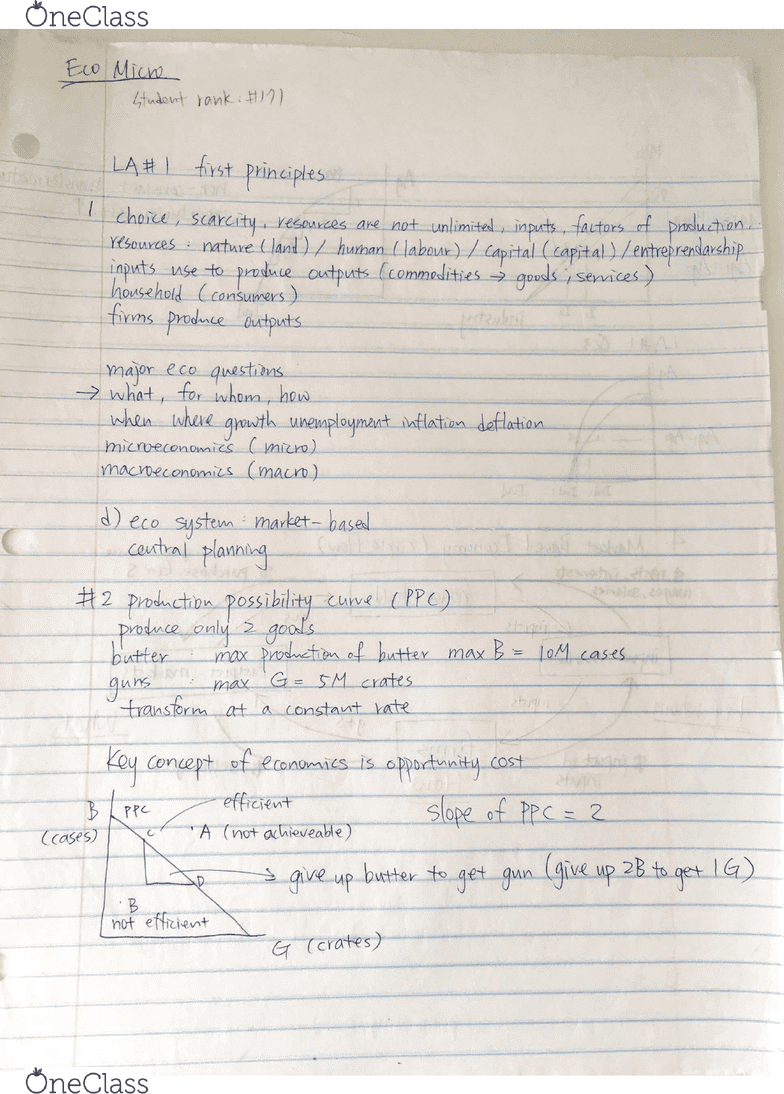 OneClass
Eco Micro
Student rank: #171
LA#1 first principles
1 choice, scarcity, resources are not unlimited, inputs, factors of production,
resources : nature (land) / human (labour) / capital (capital) / entreprendarship
inputs use to produce outputs (commodities → goods, services)
household (consumers)
firms produce outputs
major eco questions
→ what, for whom, how
when where growth unemployment inflation deflation
microeconomics (micro)
macroeconomics (macro)
d) eco system : market-based
central planning
#2 production possibility curve (PPC)
produce only 2 goods
butter : max production of butter max B = 10M cases
guns : max G = 5M crates
transform at a constant rate
Key concept of economics is opportunity cost
B PPC efficient slope of PPC = 2
(cases) C ·A (not achieveable)
D → give up butter to get gun (give up 2B to get 1G)
·B
not efficient
G (crates)
OneClass